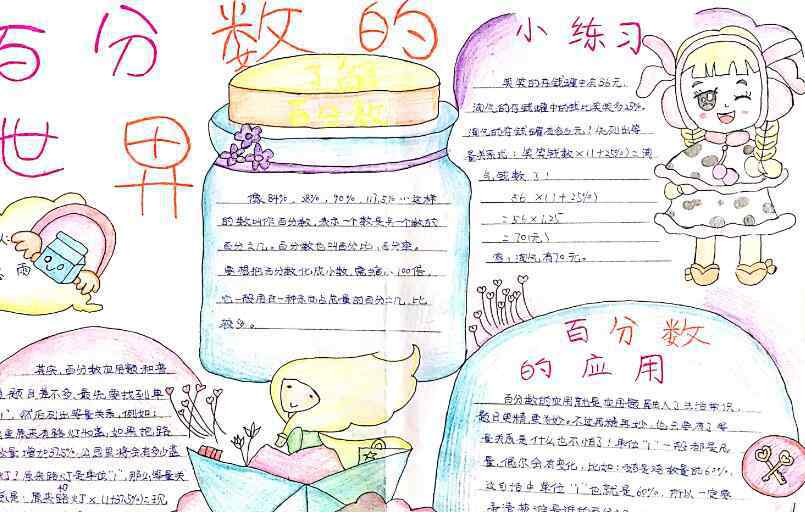 百分数的
世界
了解
百分数
像84%，28%，90%，117.5%…这样
的数叫作百分数，表示一个数是另一个数的
百分之几。百分数也叫百分比，百分率。
要想把百分数化成小数，需缩小100倍，
也一般用在一种东西占总量的百分之几，比
较多。
小练习
笑笑的存钱罐中有56元，
淘气的存钱罐中的钱比笑笑多25%。
淘气的存钱罐有多少元？先列出等
量关系式：笑笑钱数×(1+25%)=淘
气钱数？！
56×(1+25%)
=56×1.25
=70(元)
答：淘气有70元。
雨
其实，百分数应用题和普
题目差不多，最先要找到单
"1"，然后列出等量关系，例如：
原来有路灯40盏，如果把路
量增加37.5%，公园里将会有多少盏
灯？原来路灯是单位"1"，那么等量关
系是：原来路灯×(1+37.5%)=现
百分数
的应用
百分数的应用就是应用题融入了生活常识，
题目更精更妙。不过再精再妙，也只要有了等
量关系是什么也不怕了！单位"1"一般都是几
量，偶尔会有变化，比如：
这句话中单位"1"也就是60%，所以一定要